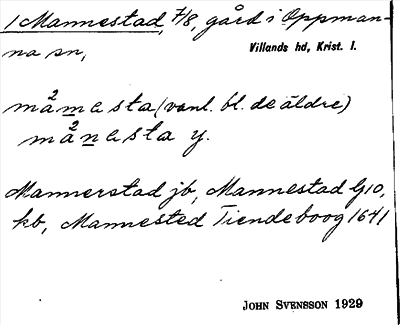 1 Mannestad, 7/8, gård i Oppman-
na sn,
Villands hd, Krist. l.
må2nnesta (vanl. bl. de äldre)
må2nnesta y.
Mannerstad jb, Mannestad G10,
kb, Mannested Tiendeboog 1641
JOHN SVENSSON 1929